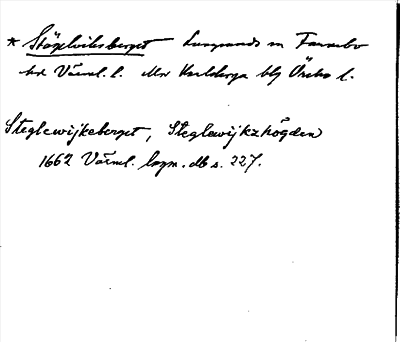 * Stägelviksberget Lungsunds sn Färnebo
hd Värml. l. Mm Karlskoga blg Örebro l.
Steglewijkeberget, Steglewijkzhögden
1662 Värml. lagm. db s. 227.